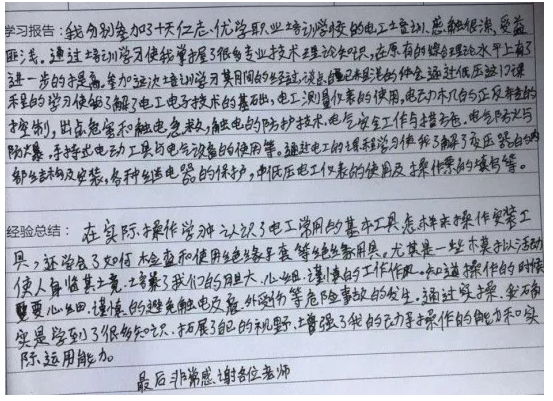 学习报告:我分别参加了十天仁志、优学职业培训学校的电工培训、感触很深,受益
匪浅。通过培训学习使我掌握了很多专业技术理论知识,在原有的综合理论水平上有了
进一步的提高。参加这次培训学习其间的经过,谈点自己粗浅的体会通过低压这门课
程的学习使我了解了电工电子技术的基础,电工测量仪表的使用,电动机的正反转的
控制,出点危害和触电急救,触电的防护技术,电气安全工作与措施,电气防火与
防爆,手持式电动工具与电气设备的使用等。通过电工的课程学习使我了解了变压器的内
部结构及安装,各种继电器的保护,中低压电工仪表的使用及操作票的填写等。
经验总结: 在实际操作学习中认识了电工常用的基本工具,怎样来操作安装工
具,还学会了如何检查和使用绝缘手套等绝缘用具。尤其是一些模拟活动
使人身临其境,培养了我们的胆大、心细、谨慎的工作作风。知道操作的时候
要心细、谨慎的避免触电及意外受伤等危险事故的发生。通过实操,我确
实是学到了很多知识,拓展了自己的视野,增强了我的动手操作的能力和实
际运用能力。
最后非常感谢各位老师